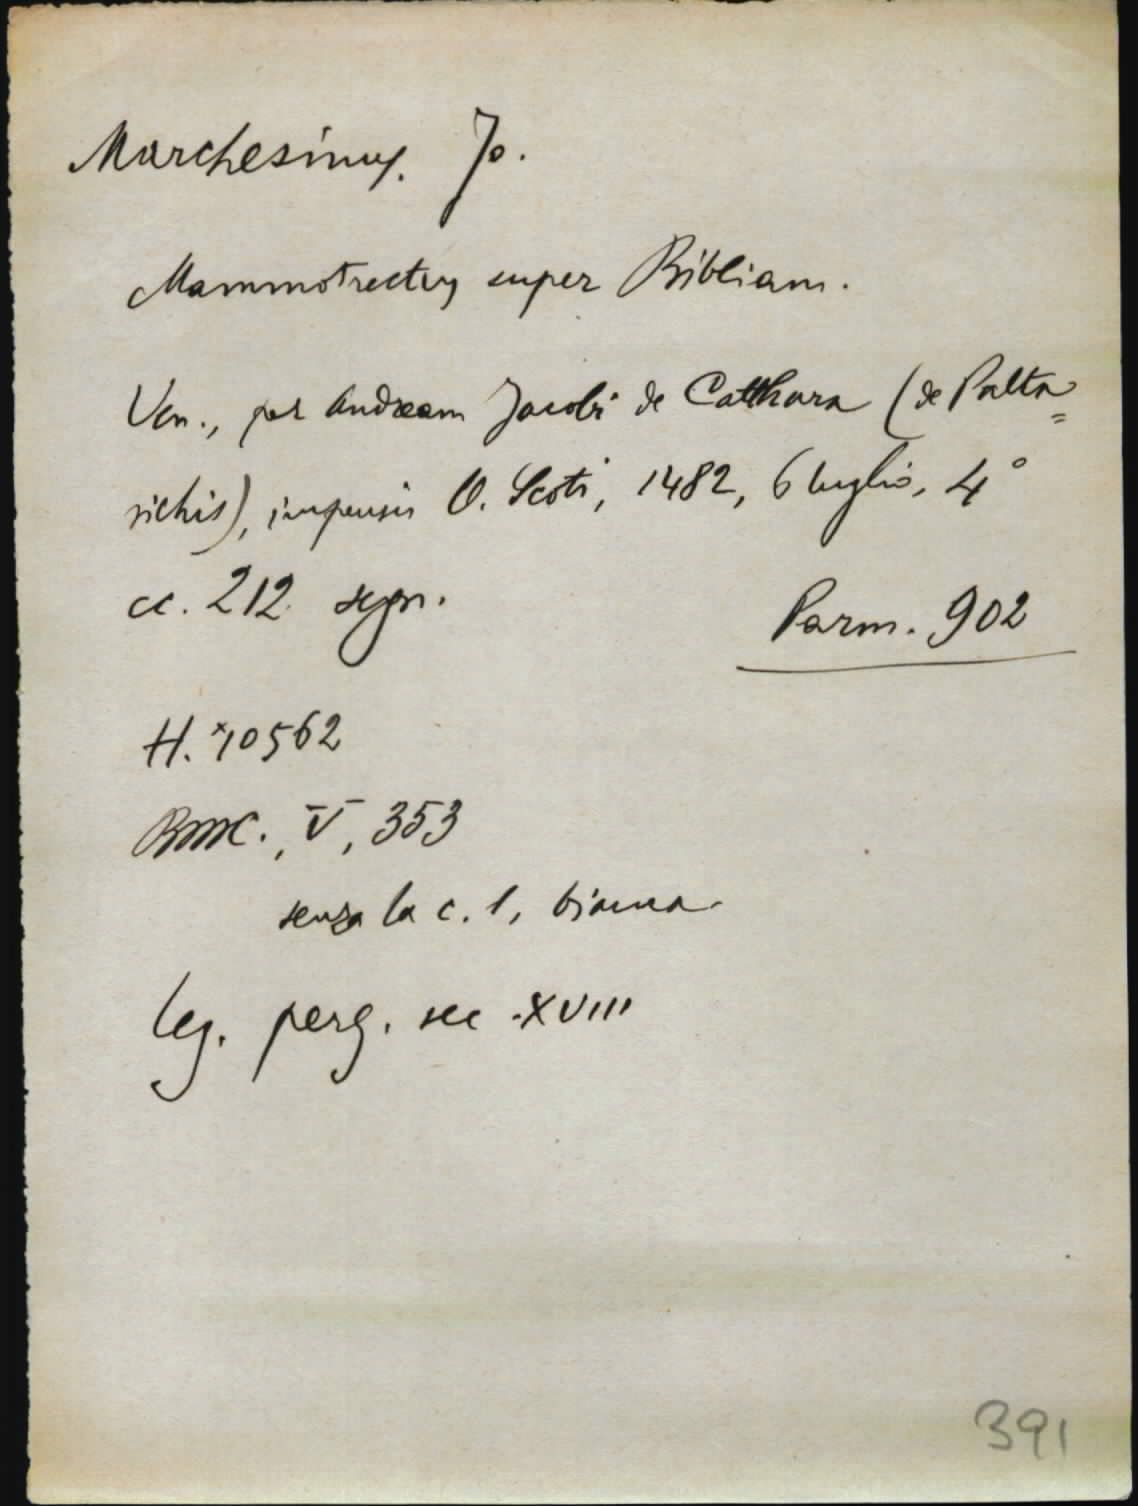 Marchesinus. Jo.
Mammotrectus super Bibliam.
Ven., per Andream Jacobi de Catthara (de Palta=
sichis), impensis O. Scoti, 1482, 6 luglio, 4°
cc. 212. segn.
Parm. 902
H. *10562
BMC., V, 353
senza la c. 1, bianca.
Leg. perg. sec. XVIII
391